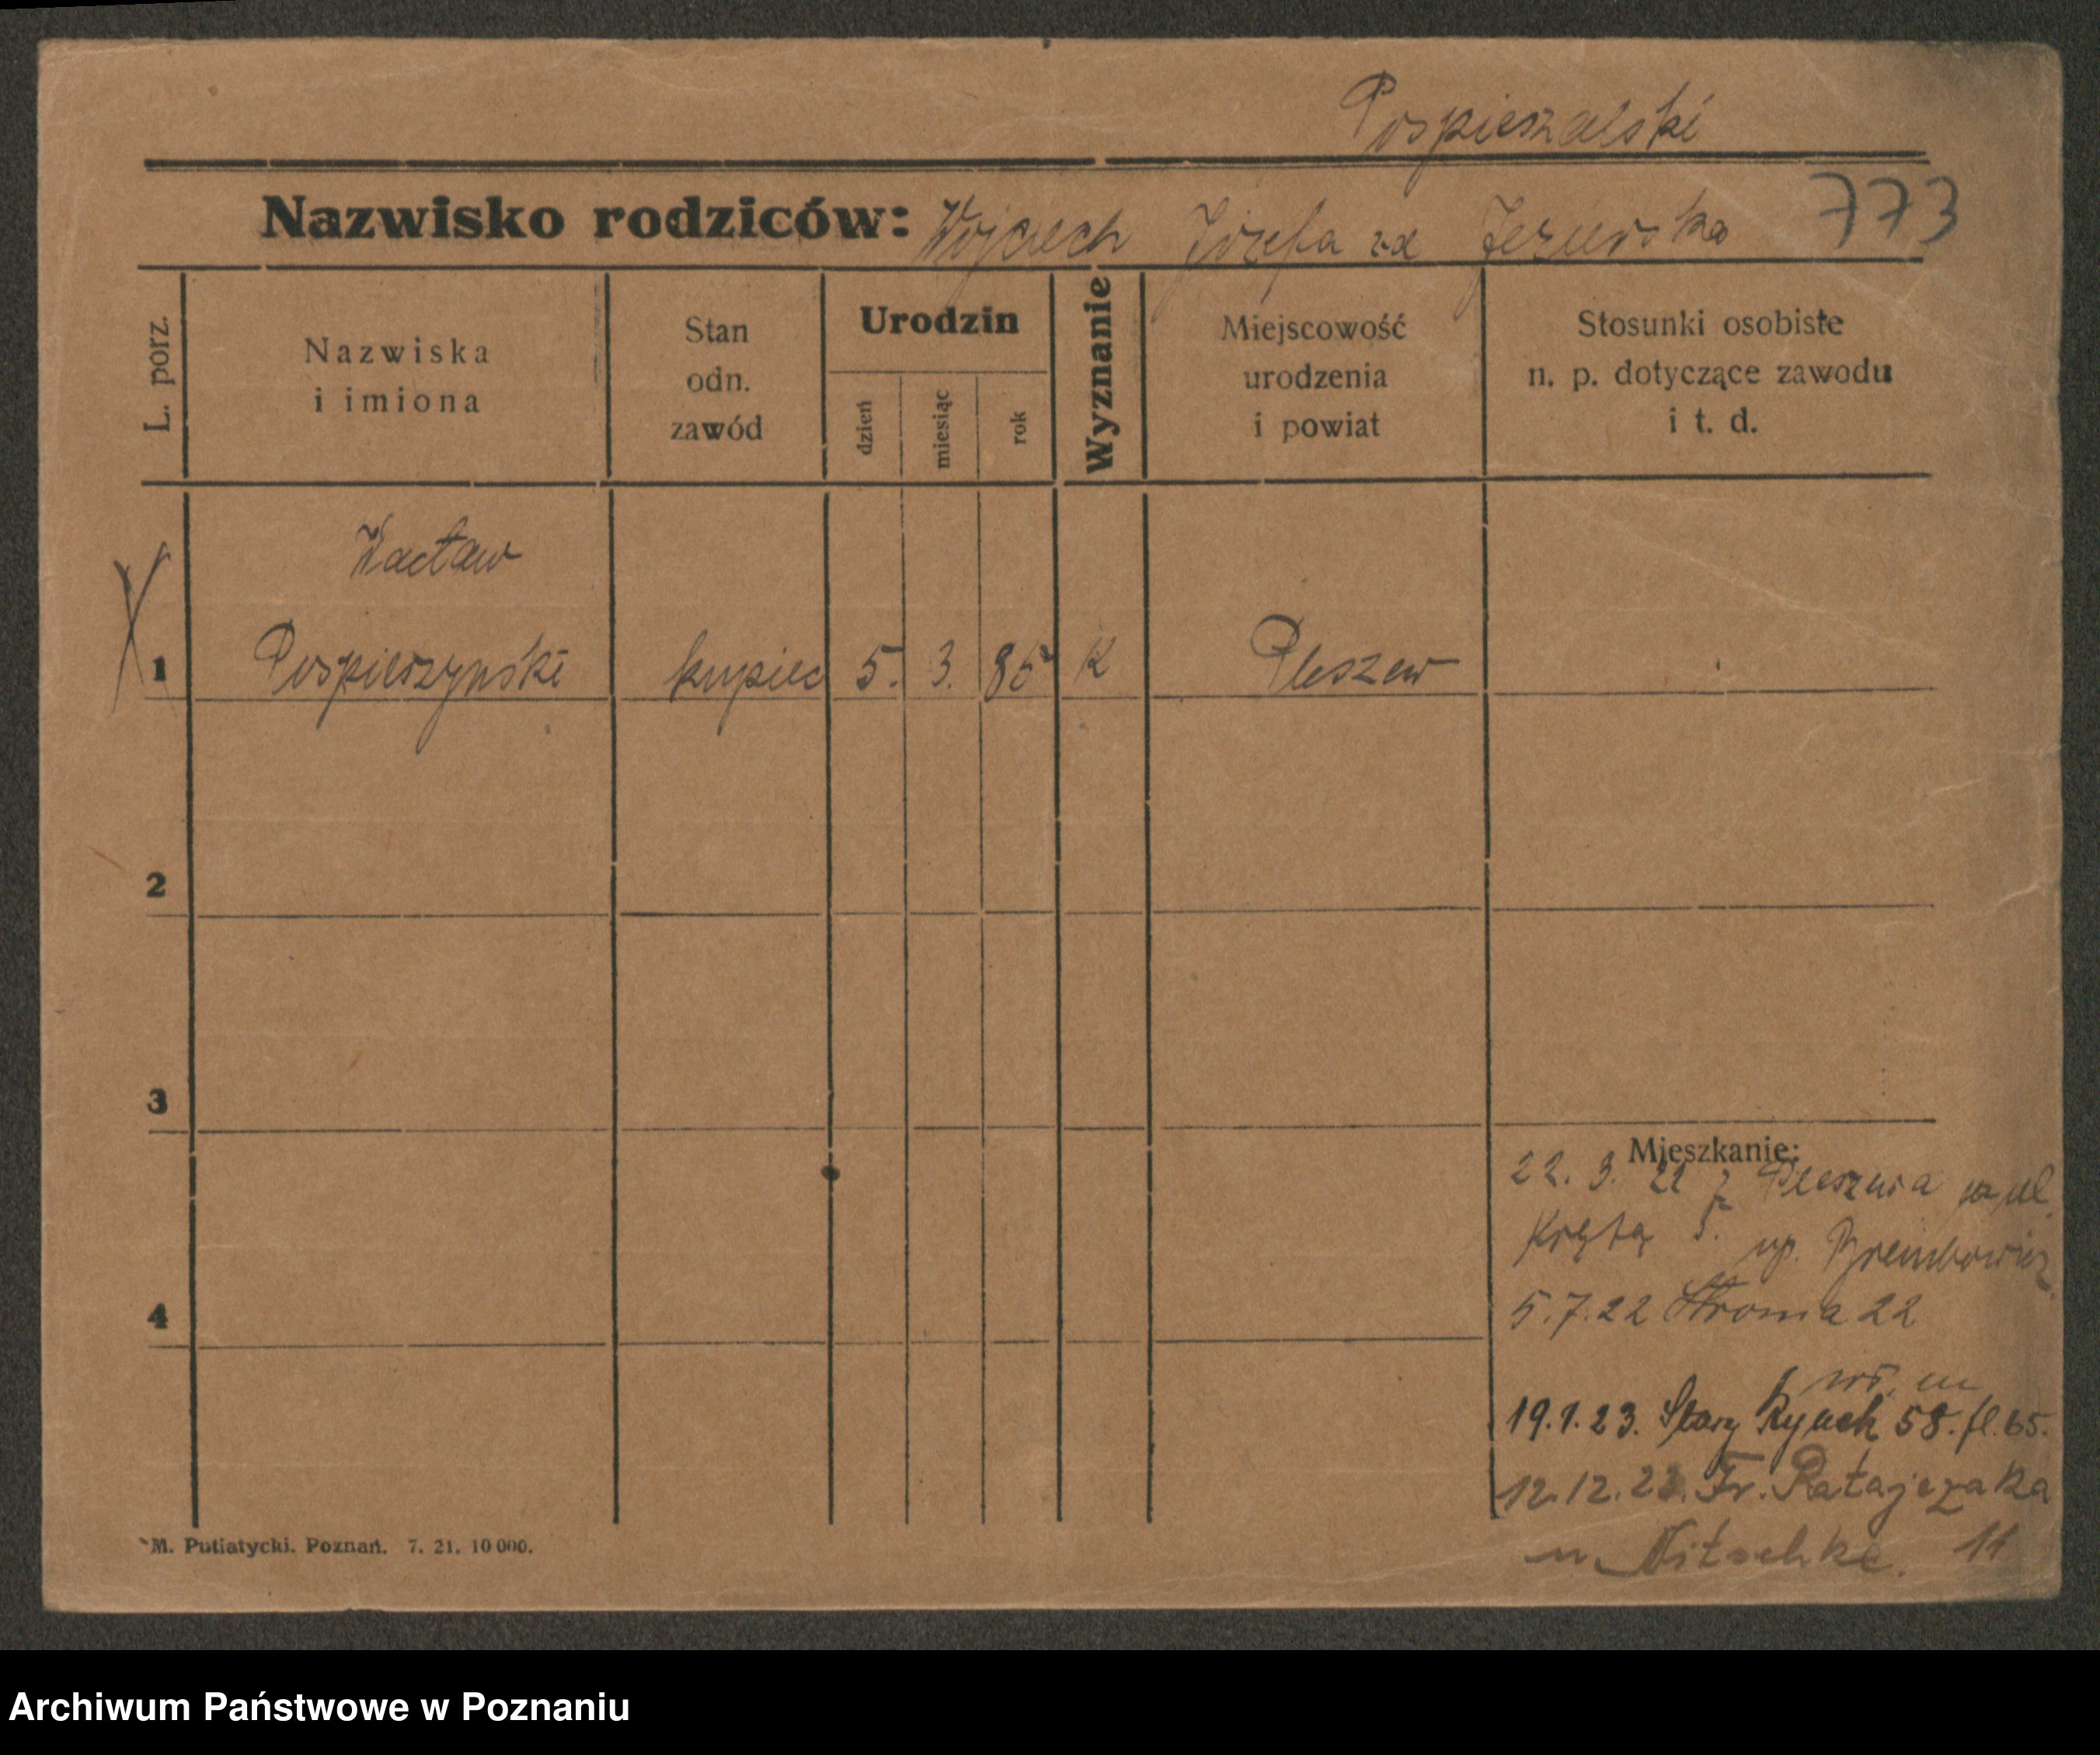 Pospieszalski
Nazwisko rodziców: Wojciech Józefa zd Jezierska 773
L. porz.
Nazwiska
i imiona
Stan
odn.
zawód
Urodzin
dzień
miesiąc
rok
Wyznanie
Miejscowość
urodzenia
i powiat
Stosunki osobiste
n. p. dotyczące zawodu
i t. d.
Wacław
X 1 Pospieszyński kupiec 5. 3. 85 K Pleszew
2
3
Mieszkanie:
22. 3. 22 z Pleszewa na ul.
Krętą 5. up.
4
5.7.22 Stroma 22
19.1.23. Stary Rynek 58. fl. 65.
12.12.23. Fr. Ratajczaka
u Nitschke. 11
M. Putiatycki. Poznań. 7. 21. 10 000.
Archiwum Państwowe w Poznaniu